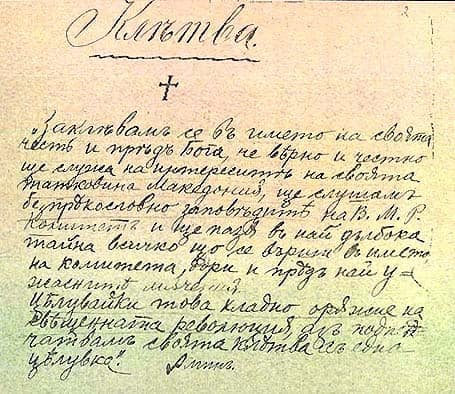 2
Клѣтва.
„Заклѣвамъ се въ името на своята
честь и прѣдъ Бога, че вѣрно и честно
ще служа на интереситѣ на своята
татковина Македония, ще слушамъ
безпрѣкословно заповѣдитѣ на В. М. Р.
Комитетъ и ще пазя въ най дълбока
тайна всичко що се върши въ името
на комитета, дори и прѣдъ най у-
жаснитѣ мѫчения
Цѣлувайки това хладно орѫжие на
свѣщенната революция, азъ подпе-
чатвамъ своята клѣтва съ една
цѣлувка“. Аминь.